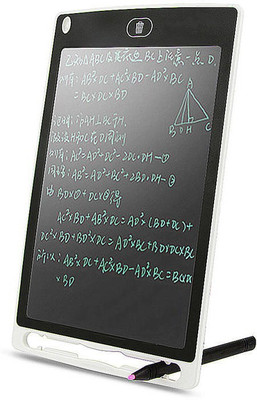 已知△ABC及底边BC上任意一点D.
AB²×DC+AC²×BD-AD²×BC
=BC×DC×BD
A
B D H C
AH⊥BC于H
AC²=AD²+DC²-2DC·DH-①
AB²=AD²+BD²+2BD·DH-②
由 BD×①+DC×②得
AC²×BD+AB²×DC=AD²×(BD+DC)+
DC²×BD+BD²×DC=AD²×BC+BD×DC×BC
AB²×DC+AC²×BD-AD²×BC=BC×DC
×BD